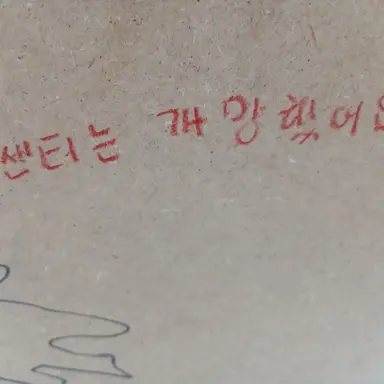 쎈터는 개망했어요